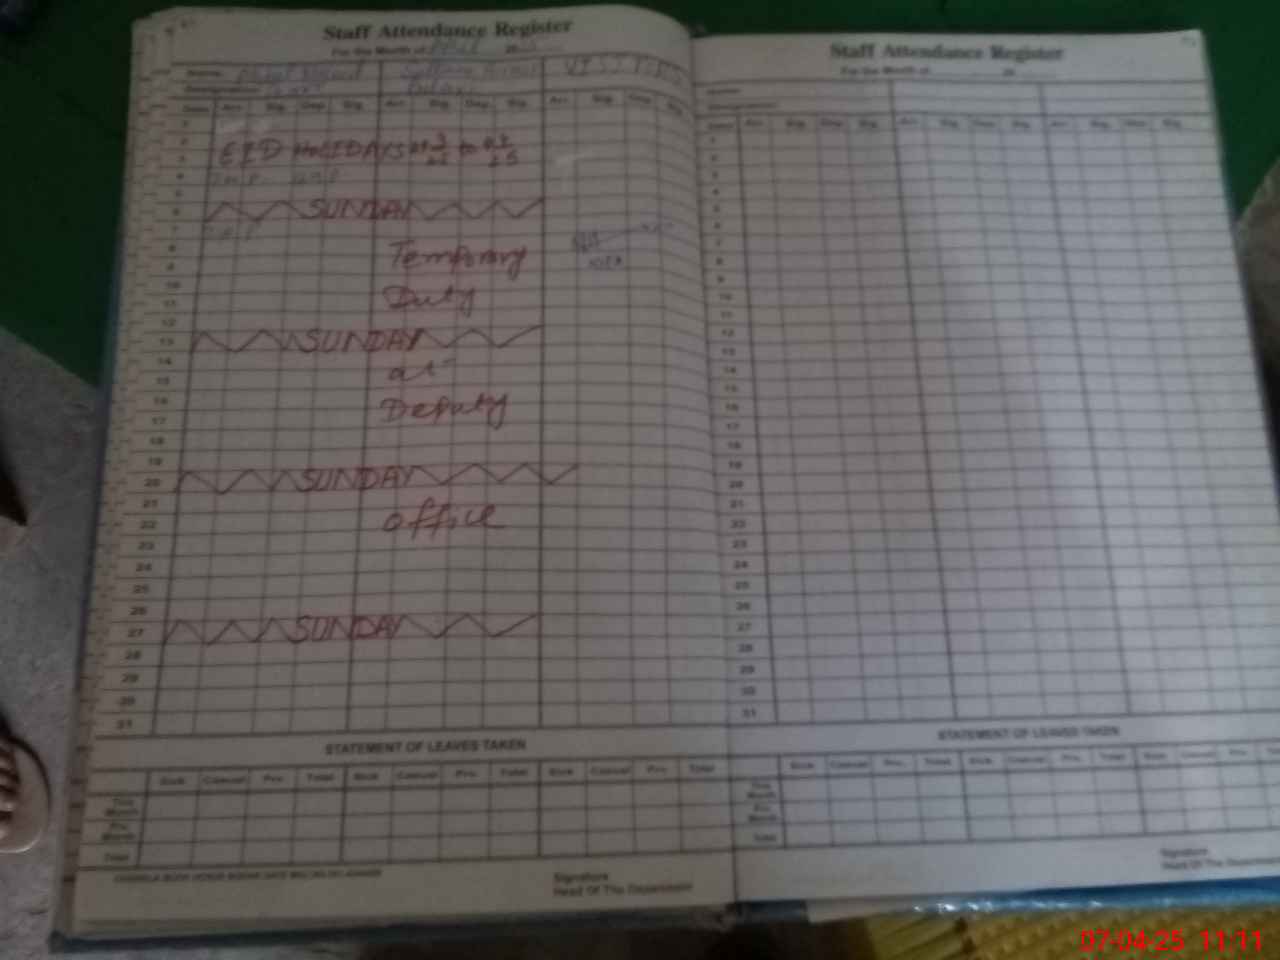 Staff Attendance Register
For the Month of April
Name
Designation
VISITORS
Date Arr. Sig. Dep. Sig. Arr. Sig. Dep. Sig. Arr. Sig. Dep. Sig.
1
2
EID HOLIDAYS
3
4
5
6 SUNDAY
7
8 Temporary
9
10
Duty
11
12
13 SUNDAY
14
at
15
16
Deputy
17
18
19
20 SUNDAY
21
22 office
23
24
25
26
27 SUNDAY
28
29
30
31
STATEMENT OF LEAVES TAKEN
Sick Casual Prv. Total Sick Casual Prv. Total Sick Casual Prv. Total
This Month
Prv. Month
Total
Signature
Head Of The Department
Staff Attendance Register
For the Month of
Date Arr. Sig. Dep. Sig. Arr. Sig. Dep. Sig. Arr. Sig. Dep. Sig.
1
2
3
4
5
6
7
8
9
10
11
12
13
14
15
16
17
18
19
20
21
22
23
24
25
26
27
28
29
30
31
STATEMENT OF LEAVES TAKEN
Sick Casual Prv. Total Sick Casual Prv. Total Sick Casual Prv.
This Month
Prv. Month
Total
Signature
Head Of The Depart
07-04-25 11:11